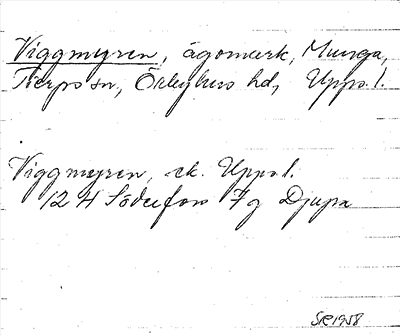 Viggmyren, ägomark, Munga,
Tierps sn, Örbyhus hd, Upps. l.
Viggmyren, ek. Upps l.
12 H Söderfors 7g Djupa
SR 1958